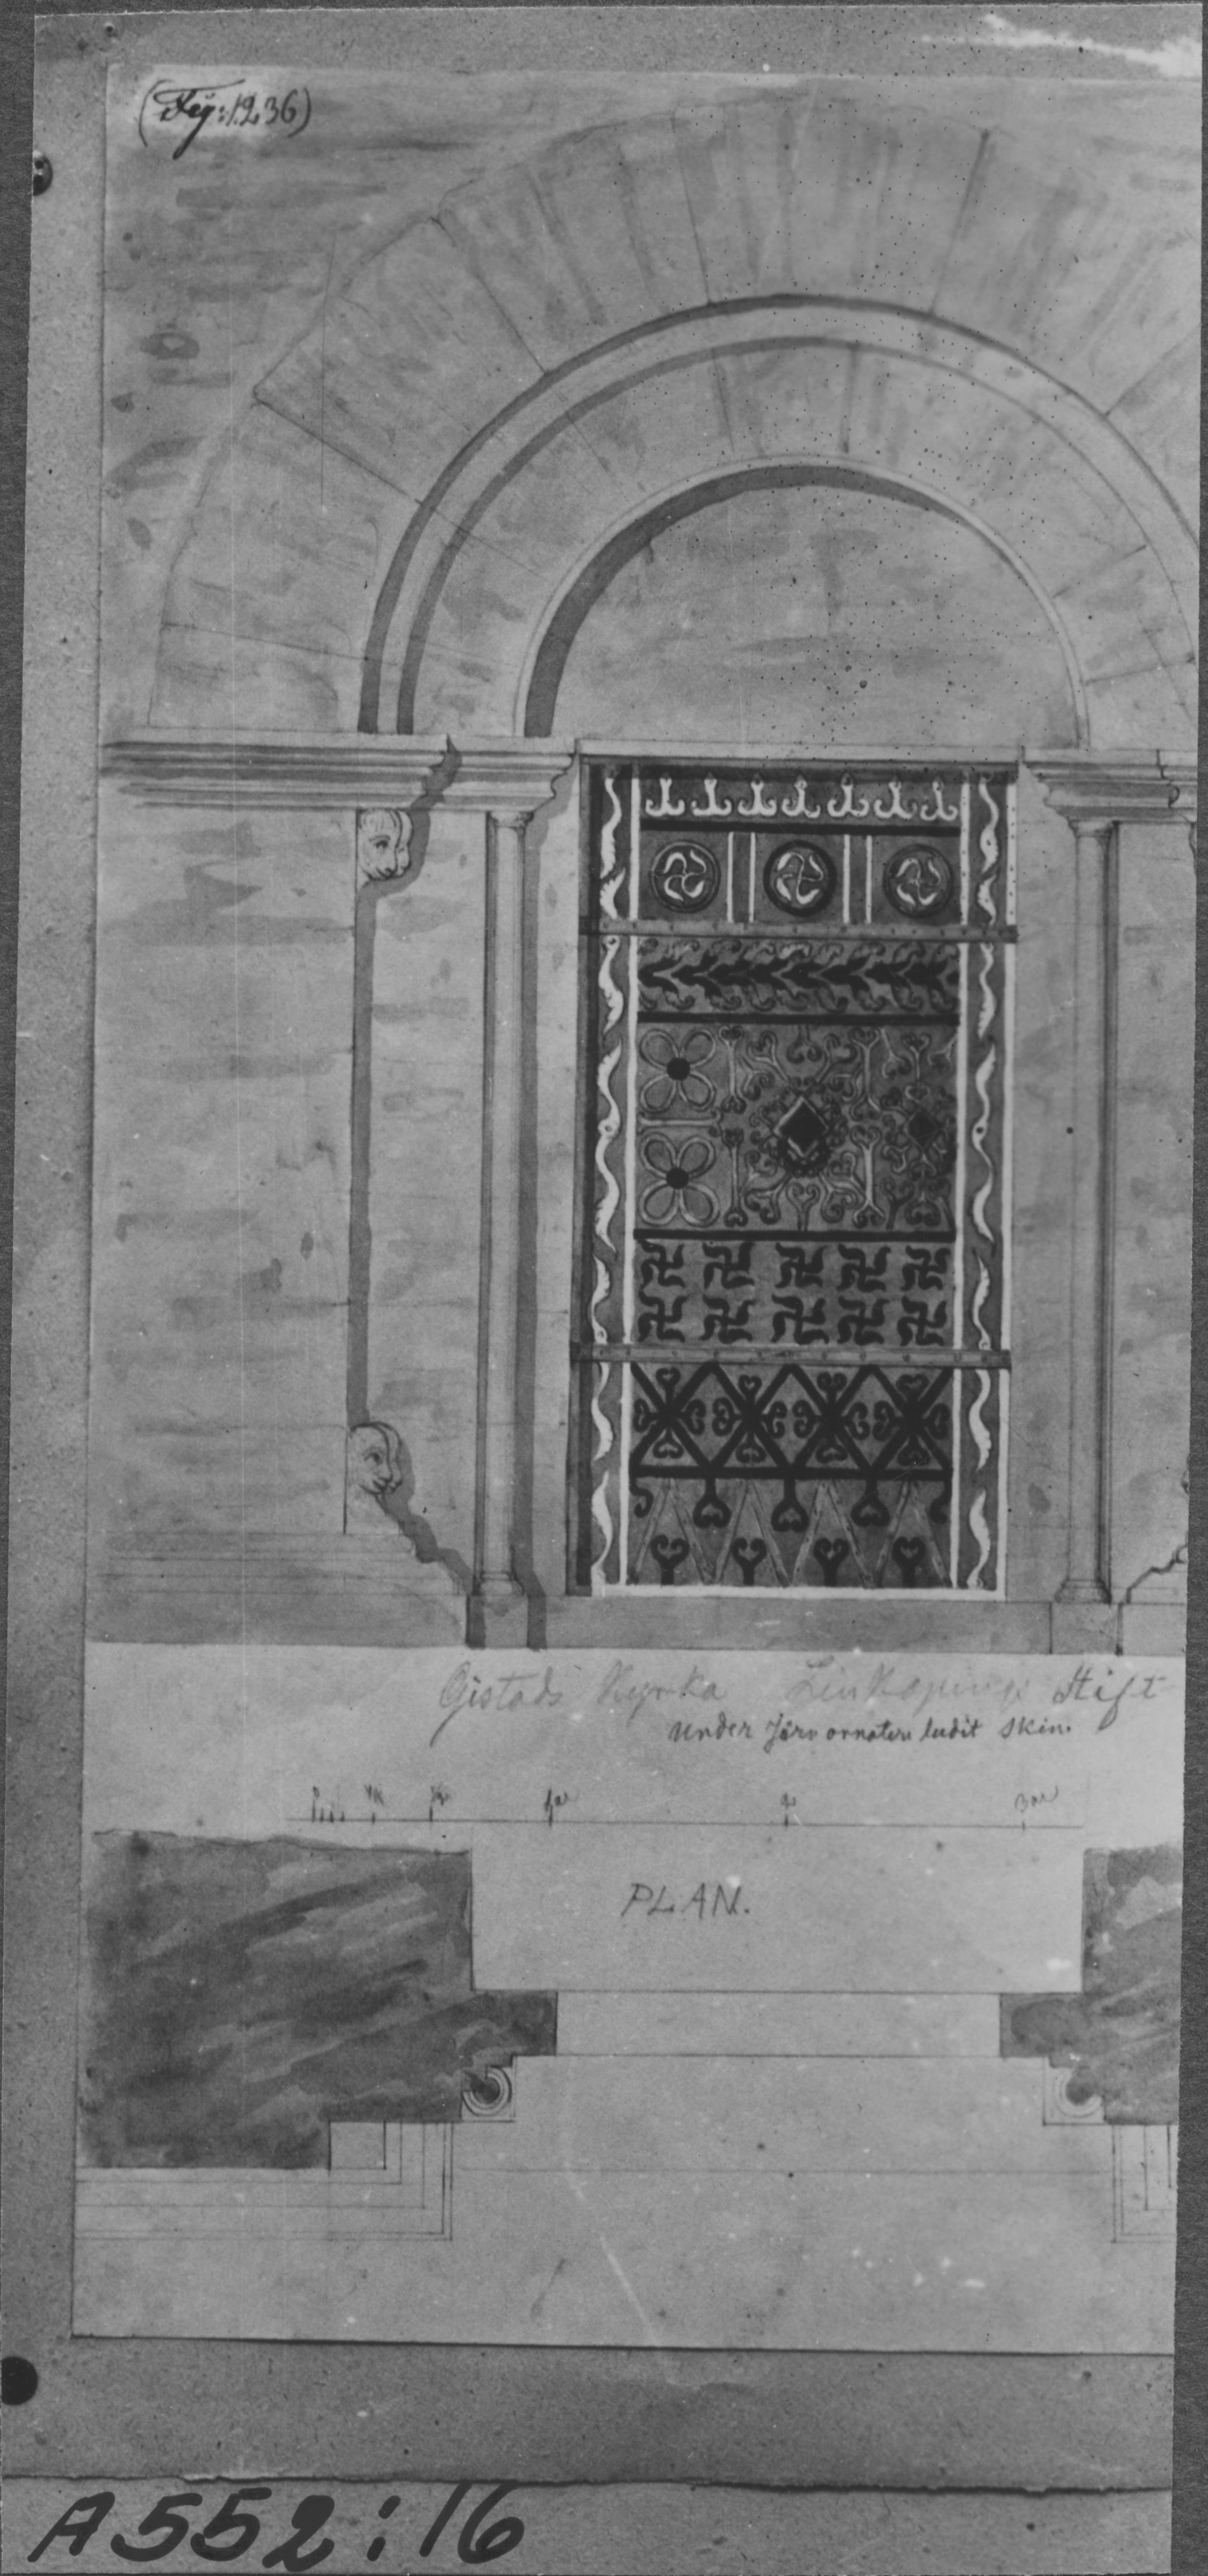 (Fig: 1236)
Gistads Kyrka Linköpings Stift
under järn ornaten ludit skin.
PLAN.
A552:16